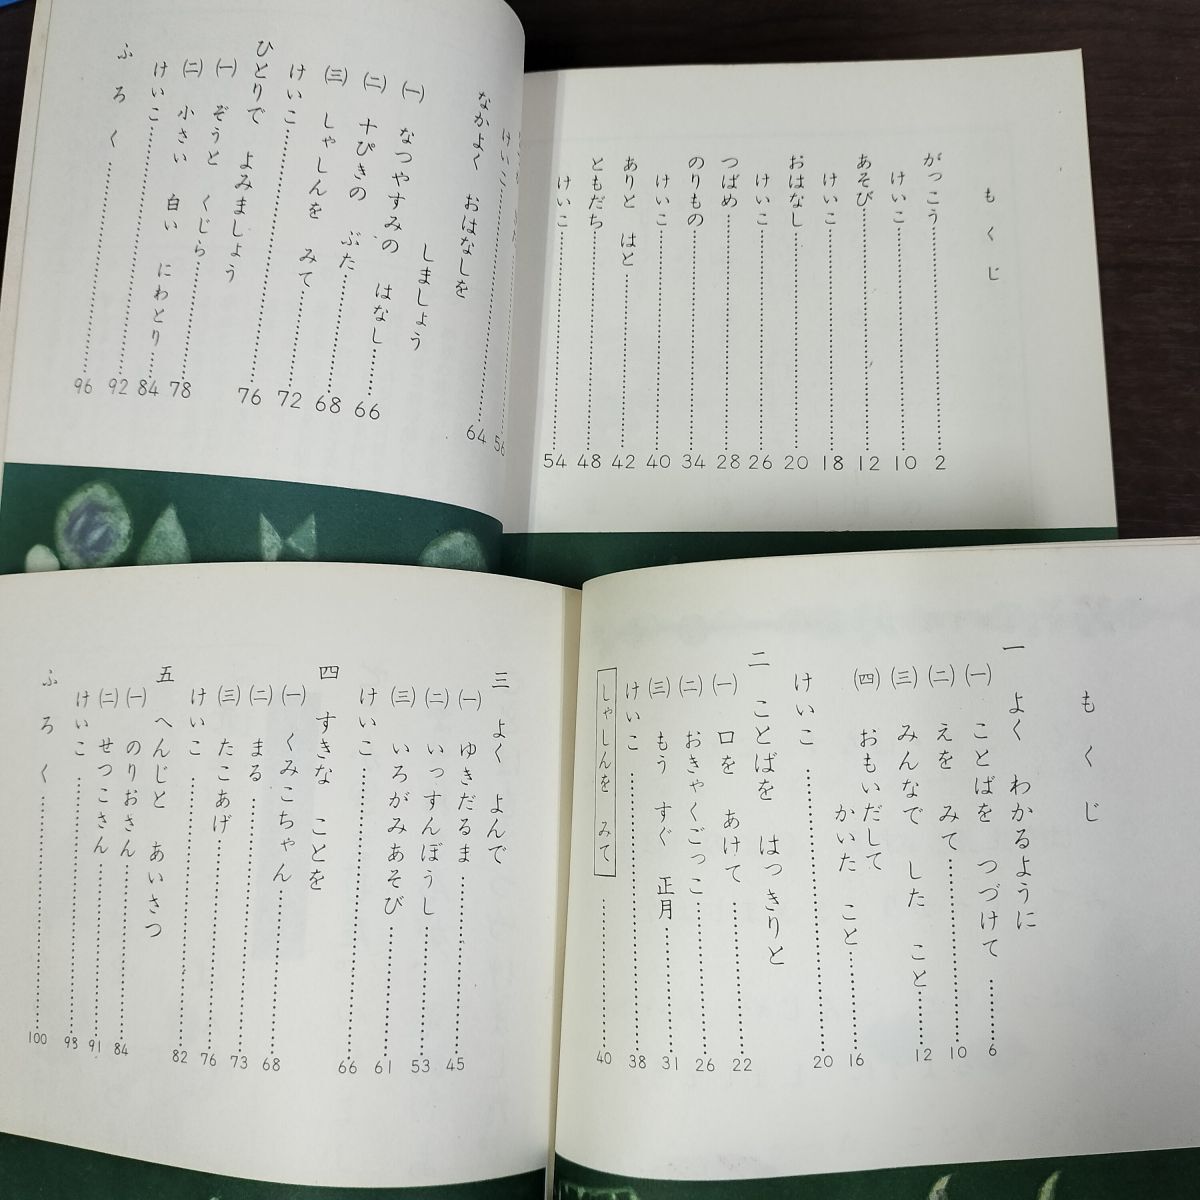 もくじ
がっこう……2
けいこ……10
あそび……12
けいこ……18
おはなし……20
けいこ……26
つばめ……28
のりもの……34
けいこ……40
ありと はと……42
ともだち……48
けいこ……54
……56
けいこ……64
なかよく おはなしを
しましょう
(一) なつやすみの はなし……66
(二) 十ぴきの ぶた……68
(三) しゃしんを みて……72
けいこ……76
ひとりで よみましょう
(一) ぞうと くじら……78
(二) 小さい 白い にわとり……84
けいこ……92
ふろく……96
もくじ
一 よく わかるように
(一) ことばを つづけて……6
(二) えを みて……10
(三) みんなで した こと……12
(四) おもいだして
かいた こと……16
けいこ……20
二 ことばを はっきりと
(一) 口を あけて……22
(二) おきゃくごっこ……26
(三) もう すぐ 正月……31
けいこ……38
しゃしんを みて……40
三 よく よんで
(一) ゆきだるま……45
(二) いっすんぼうし……53
(三) いろがみあそび……61
けいこ……66
四 すきな ことを
(一) くみこちゃん……68
(二) まる……73
(三) たこあげ……76
けいこ……82
五 へんじと あいさつ
(一) のりおさん……84
(二) せつこさん……91
けいこ……98
ふろく……100